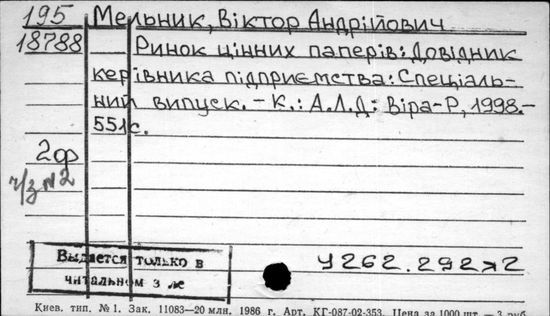 195 Мельник, Віктор Андрійович
18788 Ринок цінних паперів: Довідник
керівника підприємства: Спеціаль-
ний випуск. – К.: А.Л.Д.: Віра-Р, 1998.–
551с.
2ф
ч/з №2
Выдается только в
читальном з ле
У262.292я2
Киев. тип. № 1. Зак. 11083—20 млн. 1986 г. Арт. КГ-087-02-353. Цена за 1000 шт. — 3 руб.